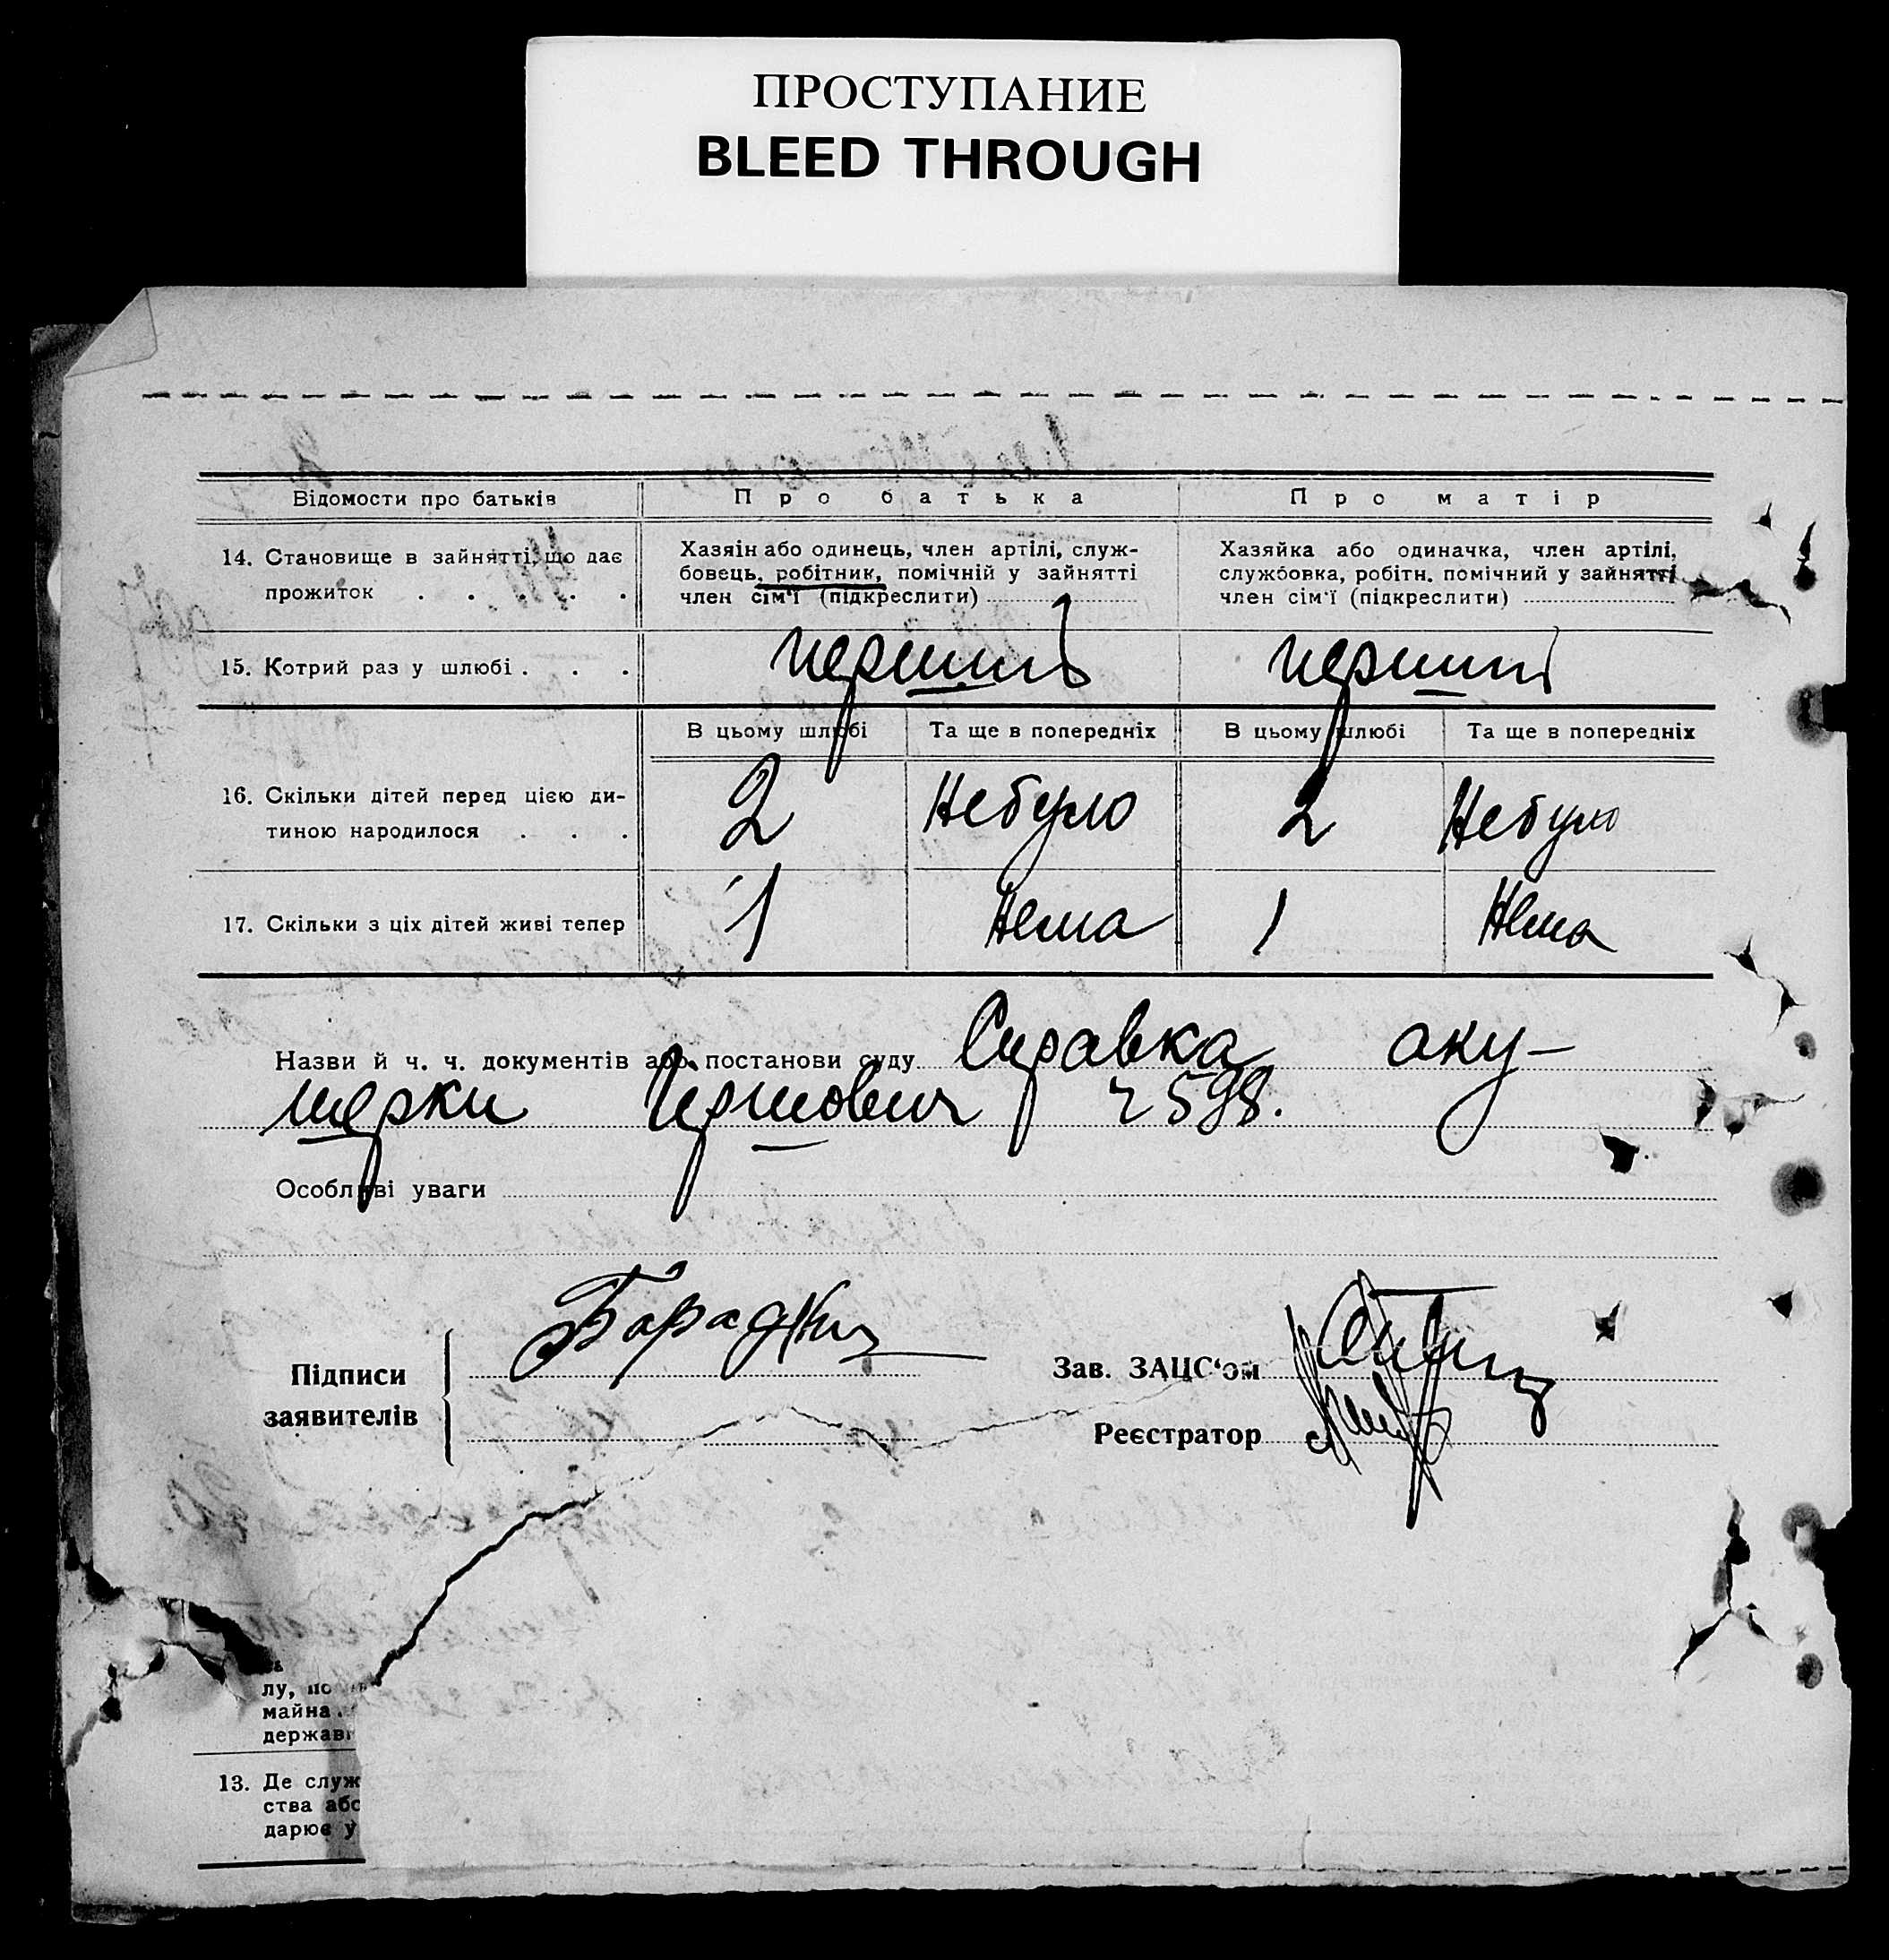 ПРОСТУПАНИЕ
BLEED THROUGH
Відомости про батьків Про батька Про матір
14. Становище в зайнятті, що дає прожиток . . . . .
Хазяін або одинець, член артілі, служ-
бовець, робітник, помічній у зайнятті
член сім'ї (підкреслити)
Хазяйка або одиначка, член артілі,
службовка, робітн. помічний у зайнятті
член сім'ї (підкреслити)
15. Котрий раз у шлюбі . . . перший перший
В цьому шлюбі Та ще в попередніх В цьому шлюбі Та ще в попередніх
16. Скільки дітей перед цією ди-
тиною народилося . . . 2 Небуло 2 Небуло
17. Скільки з ціх дітей живі тепер 1 Нема 1 Нема
Назви й ч. ч. документів або постанови суду Справка аку-
шерки ч 598.
Особливі уваги
Підписи
заявителів
Зав. ЗАЦС'ом
Реєстратор
лу, по
майна
держав
13. Де служ
ства або
дарює у